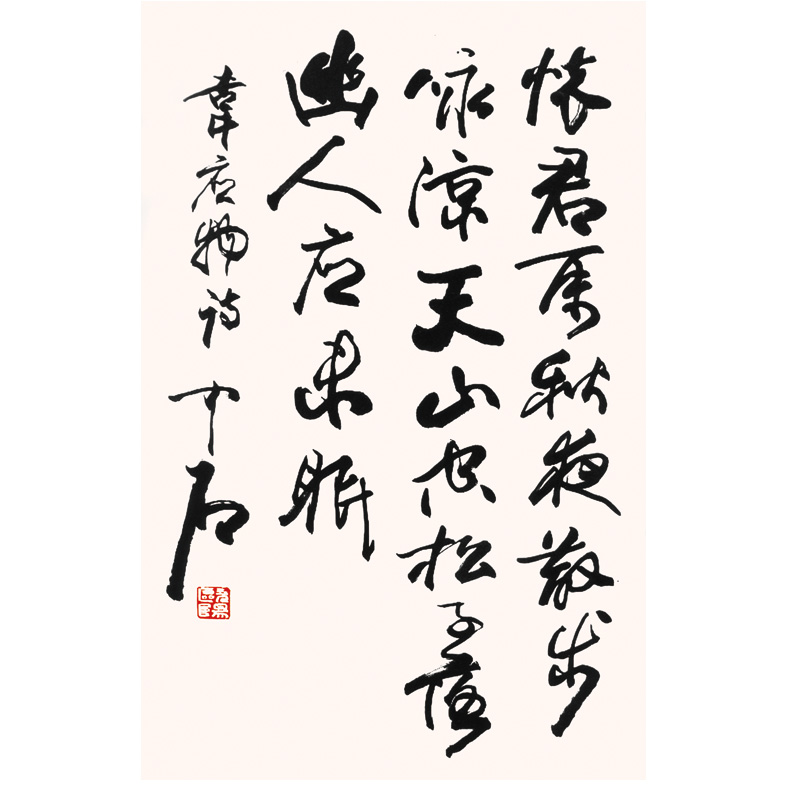 懷君属秋夜散步
咏涼天山空松子落
幽人应未眠
韋应物诗 中石